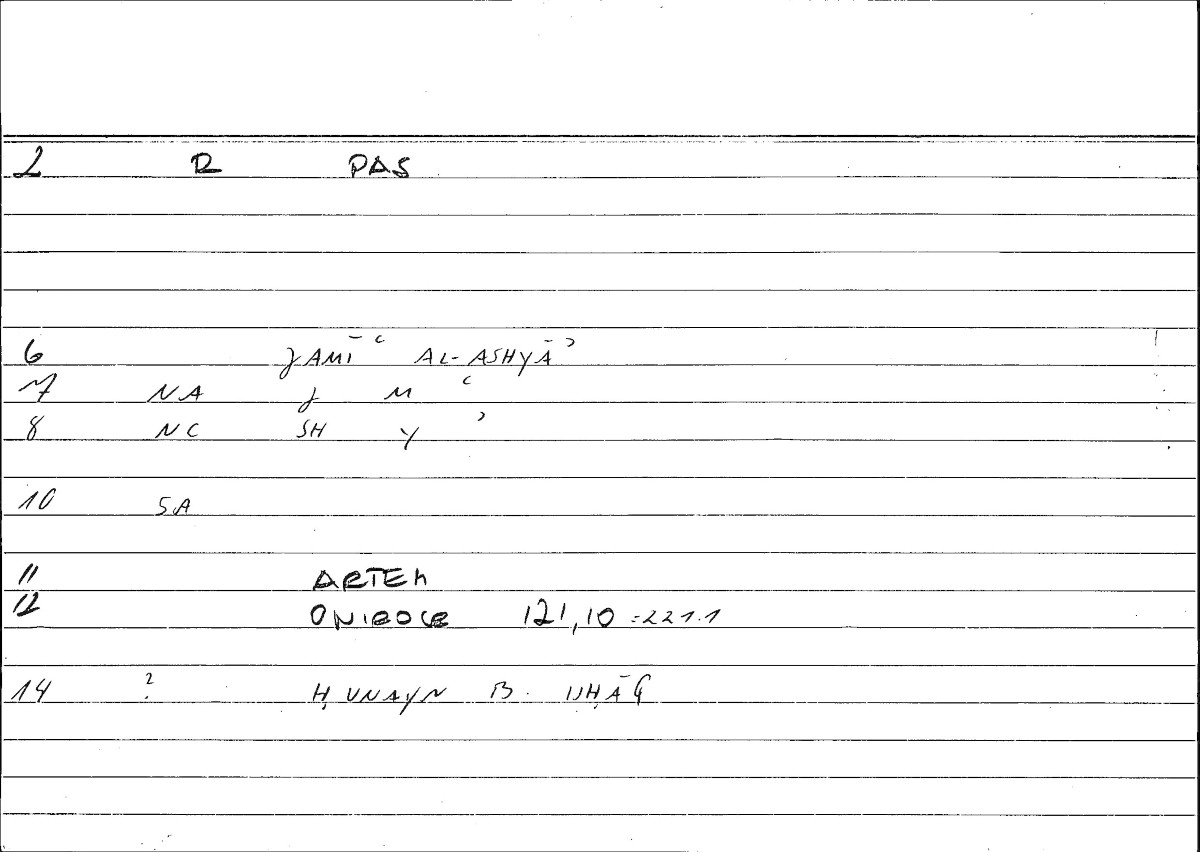 2 R PAS
6 JAMĪʿ AL-ASHYĀʾ
7 NA J M ʿ
8 NC SH Y ʾ
10 SA
11 ARTEM
12 ONIROCR 121,10 = 221.1
14 ? ḤUNAYN B. ISḤĀQ